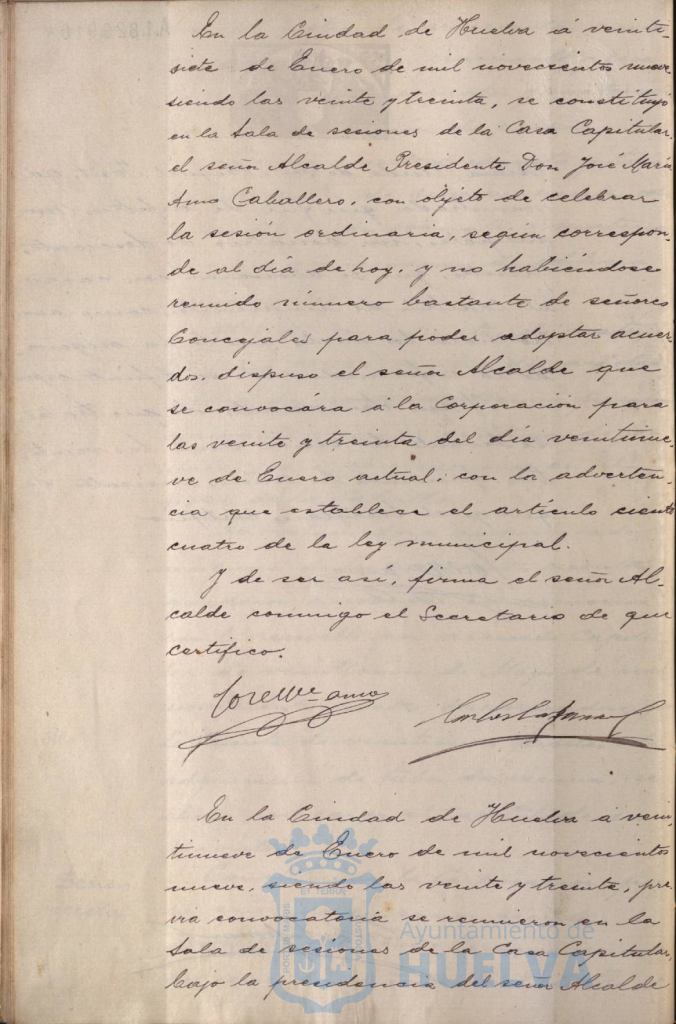 En la Ciudad de Huelva á veinti-
siete de Enero de mil novecientos nueve
siendo las veinte y treinta, se constituyó
en la Sala de sesiones de la Casa Capitular,
el señor Alcalde Presidente Don José María
Amo Caballero, con objeto de celebrar
la sesión ordinaria, según correspon-
de al día de hoy, y no habiéndose
reunido número bastante de señores
Concejales para poder adoptar acuer-
dos, dispuso el señor Alcalde que
se convocára á la Corporación para
las veinte y treinta del día veintinue-
ve de Enero actual; con la adverten-
cia que establece el artículo ciento
cuatro de la ley municipal.
Y de ser así, firma el señor Al-
calde conmigo el Secretario de que
certifico.
José Mª Amo
En la Ciudad de Huelva á vein-
tinueve de Enero de mil novecientos
nueve, siendo las veinte y treinta, pre-
via convocatoria se reunieron en la
Sala de sesiones de la Casa Capitular,
bajo la presidencia del señor Alcalde
Ayuntamiento de
HUELVA